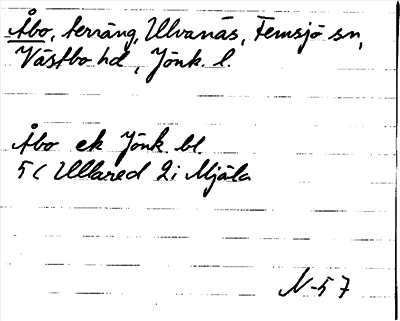 Åbo, terräng, Ulvanäs, Femsjö sn,
Västbo hd, Jönk. l.
Åbo ek Jönk. bl.
5c Ullared 2i Mjäla
N-57